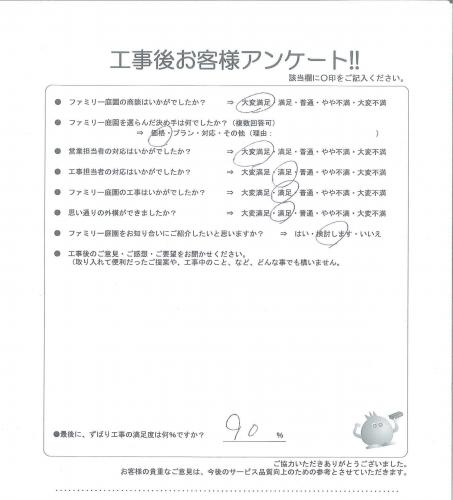 工事後お客様アンケート!!
該当欄に○印をご記入ください。
● ファミリー庭園の商談はいかがでしたか? ⇒ 大変満足・満足・普通・やや不満・大変不満
● ファミリー庭園を選らんだ決め手は何でしたか?(複数回答可)
⇒ 価格・プラン・対応・その他(理由: )
● 営業担当者の対応はいかがでしたか? ⇒ 大変満足・満足・普通・やや不満・大変不満
● 工事担当者の対応はいかがでしたか? ⇒ 大変満足・満足・普通・やや不満・大変不満
● ファミリー庭園の工事はいかがでしたか? ⇒ 大変満足・満足・普通・やや不満・大変不満
● 思い通りの外構ができましたか? ⇒ 大変満足・満足・普通・やや不満・大変不満
● ファミリー庭園をお知り合いにご紹介したいと思いますか? ⇒ はい・検討します・いいえ
● 工事後のご意見・ご感想・ご要望をお聞かせください。
(取り入れて便利だったご提案や、工事中のこと、など、どんな事でも構いません。
●最後に、ずばり工事の満足度は何%ですか? 90 %
ご協力いただきありがとうございました。
お客様の貴重なご意見は、今後のサービス品質向上のための参考とさせていただきます。